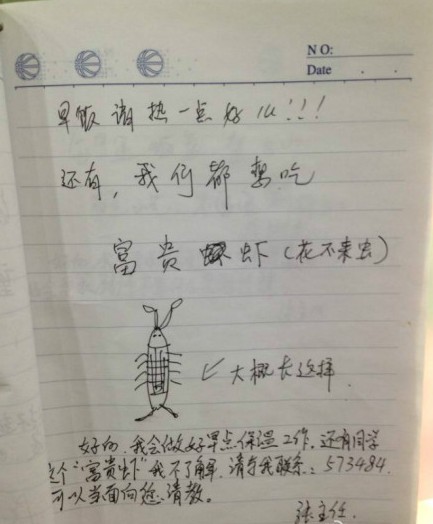 NO:
Date
早饭请热一点好么!!!
还有,我们都想吃
富贵虾(花不来虫)
大概长这样
好的,我会做好早点保温工作,还有同学
这个“富贵虾”我不了解,请与我联系:573484.
可以当面向您请教。
张主任.